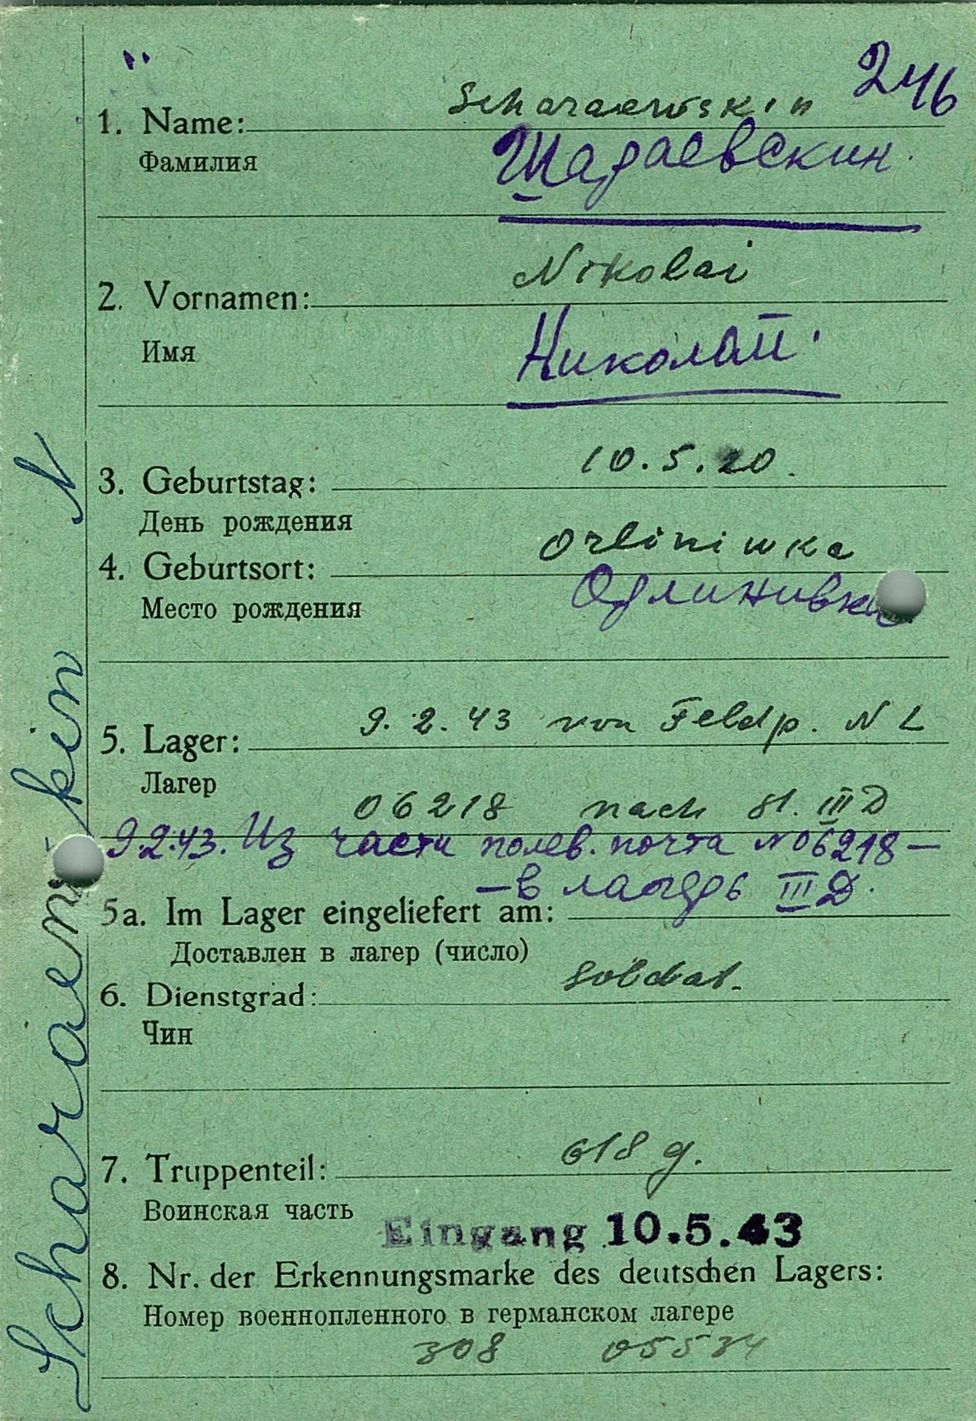 246
1. Name: Scharaewskin
Фамилия Шараевскин.
2. Vornamen: Nikolai
Имя Николай.
3. Geburtstag: 10.5.20.
День рождения
4. Geburtsort: Orliniwka
Место рождения Орлинивка
5. Lager: 9.2.43 von Feldp. N L
Лагер 06218 nach St. III D
9.2.43. Из части полев. почта N 06218 –
– в лагерь III D.
5a. Im Lager eingeliefert am:
Доставлен в лагер (число)
6. Dienstgrad: Soldat.
Чин
7. Truppenteil: 618 g.
Воинская часть
Eingang 10.5.43
8. Nr. der Erkennungsmarke des deutschen Lagers:
Номер военнопленного в германском лагере
308 05534
N